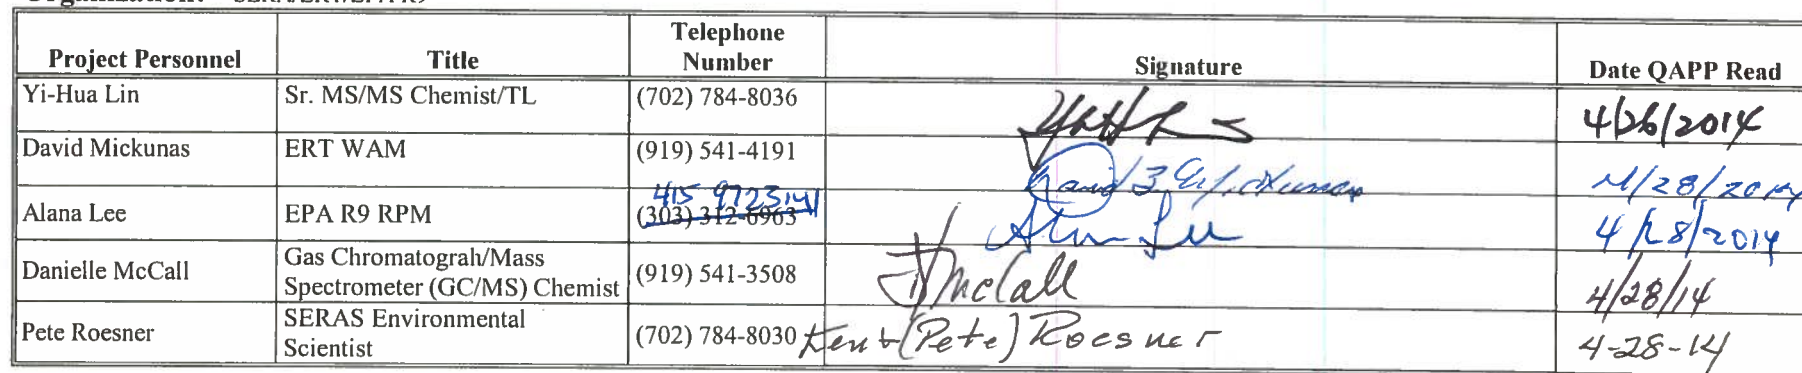 Project Personnel Title Telephone Number Signature Date QAPP Read
Yi-Hua Lin Sr. MS/MS Chemist/TL (702) 784-8036 4/26/2014
David Mickunas ERT WAM (919) 541-4191 David 4/28/2014
415 9723141
Alana Lee EPA R9 RPM (303) 312-6963 Alana Lee 4/28/2014
Danielle McCall Gas Chromatograh/Mass
Spectrometer (GC/MS) Chemist (919) 541-3508 D McCall 4/28/14
Pete Roesner SERAS Environmental
Scientist (702) 784-8030 Kent (Pete) Roesner 4-28-14